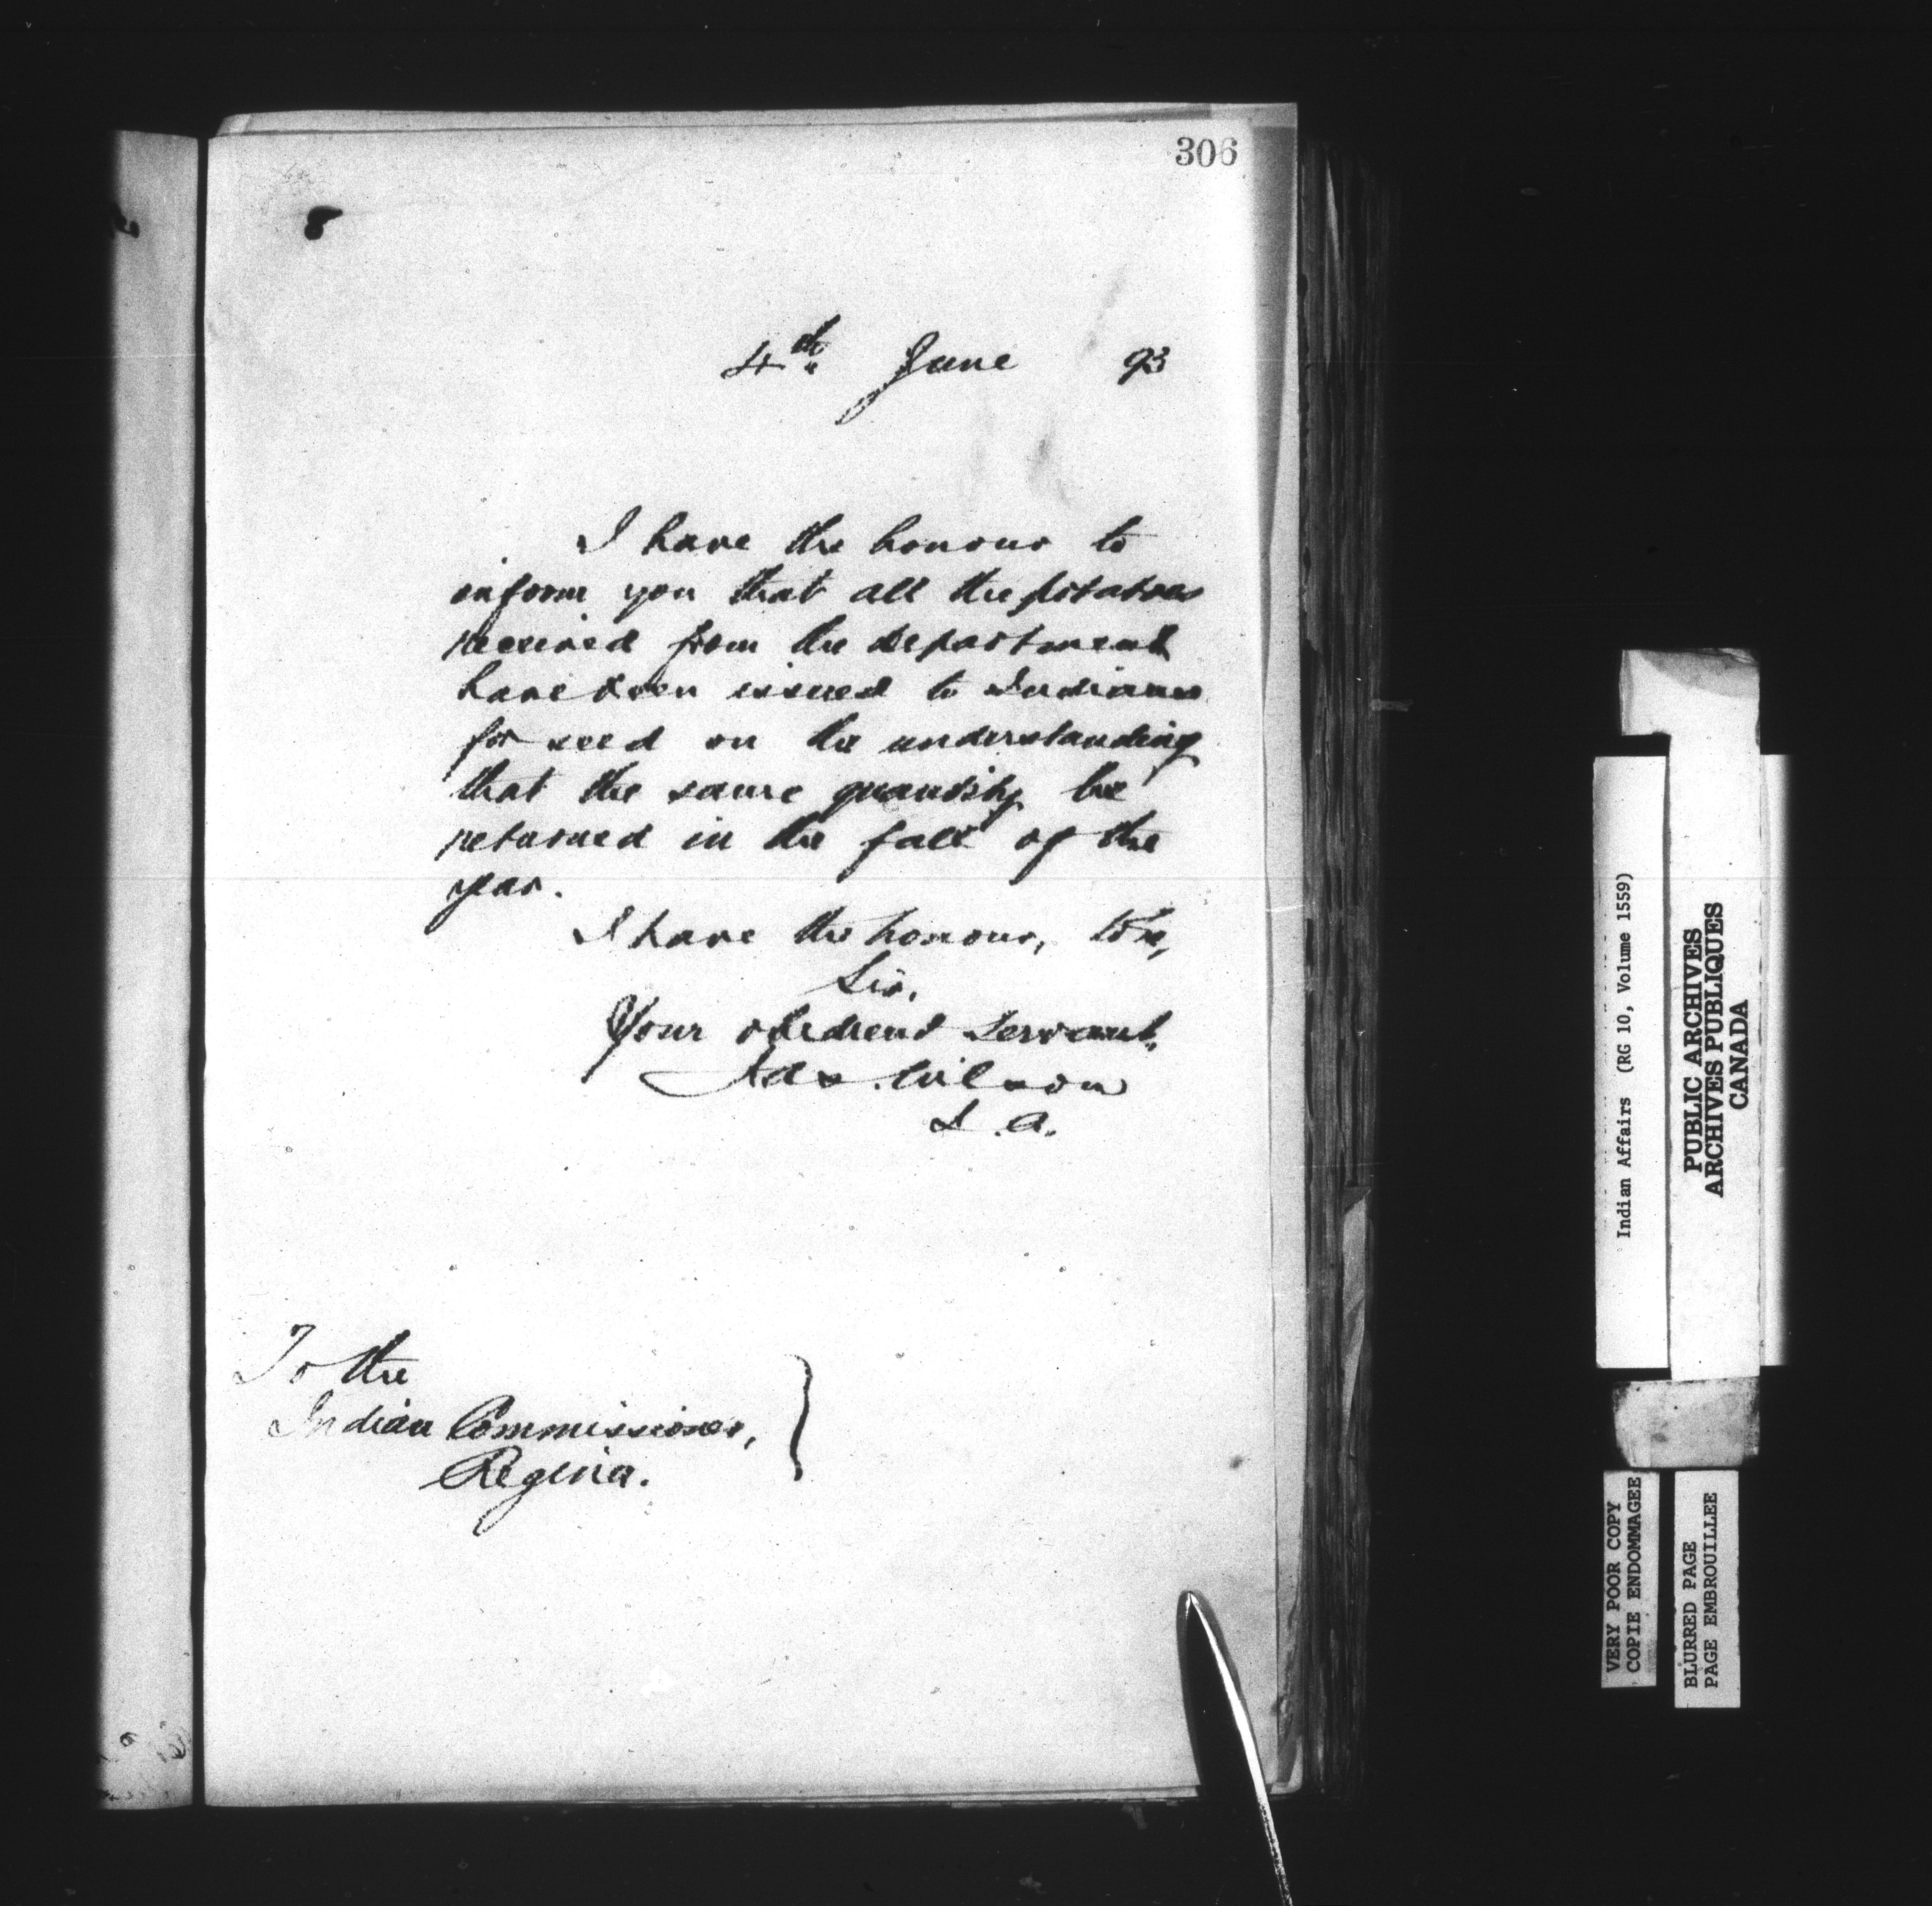 306
4th June 93
I have the honour to
inform you that all the potatoes
received from the department
have been issued to Indians
for seed on the understanding
that the same quantity be
returned in the fall of the
year.
I have the honour, to be,
Sir,
Your obedient Servant,
Jas. Wilson
I.A.
To the
Indian Commissioner,
Regina.
Indian Affairs (RG 10, Volume 1559)
PUBLIC ARCHIVES
ARCHIVES PUBLIQUES
CANADA
VERY POOR COPY
COPIE ENDOMMAGEE
BLURRED PAGE
PAGE EMBROUILLEE